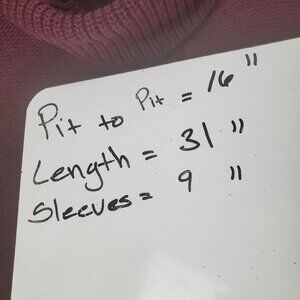 Pit to Pit = 16"
Length = 31"
Sleeves = 9"